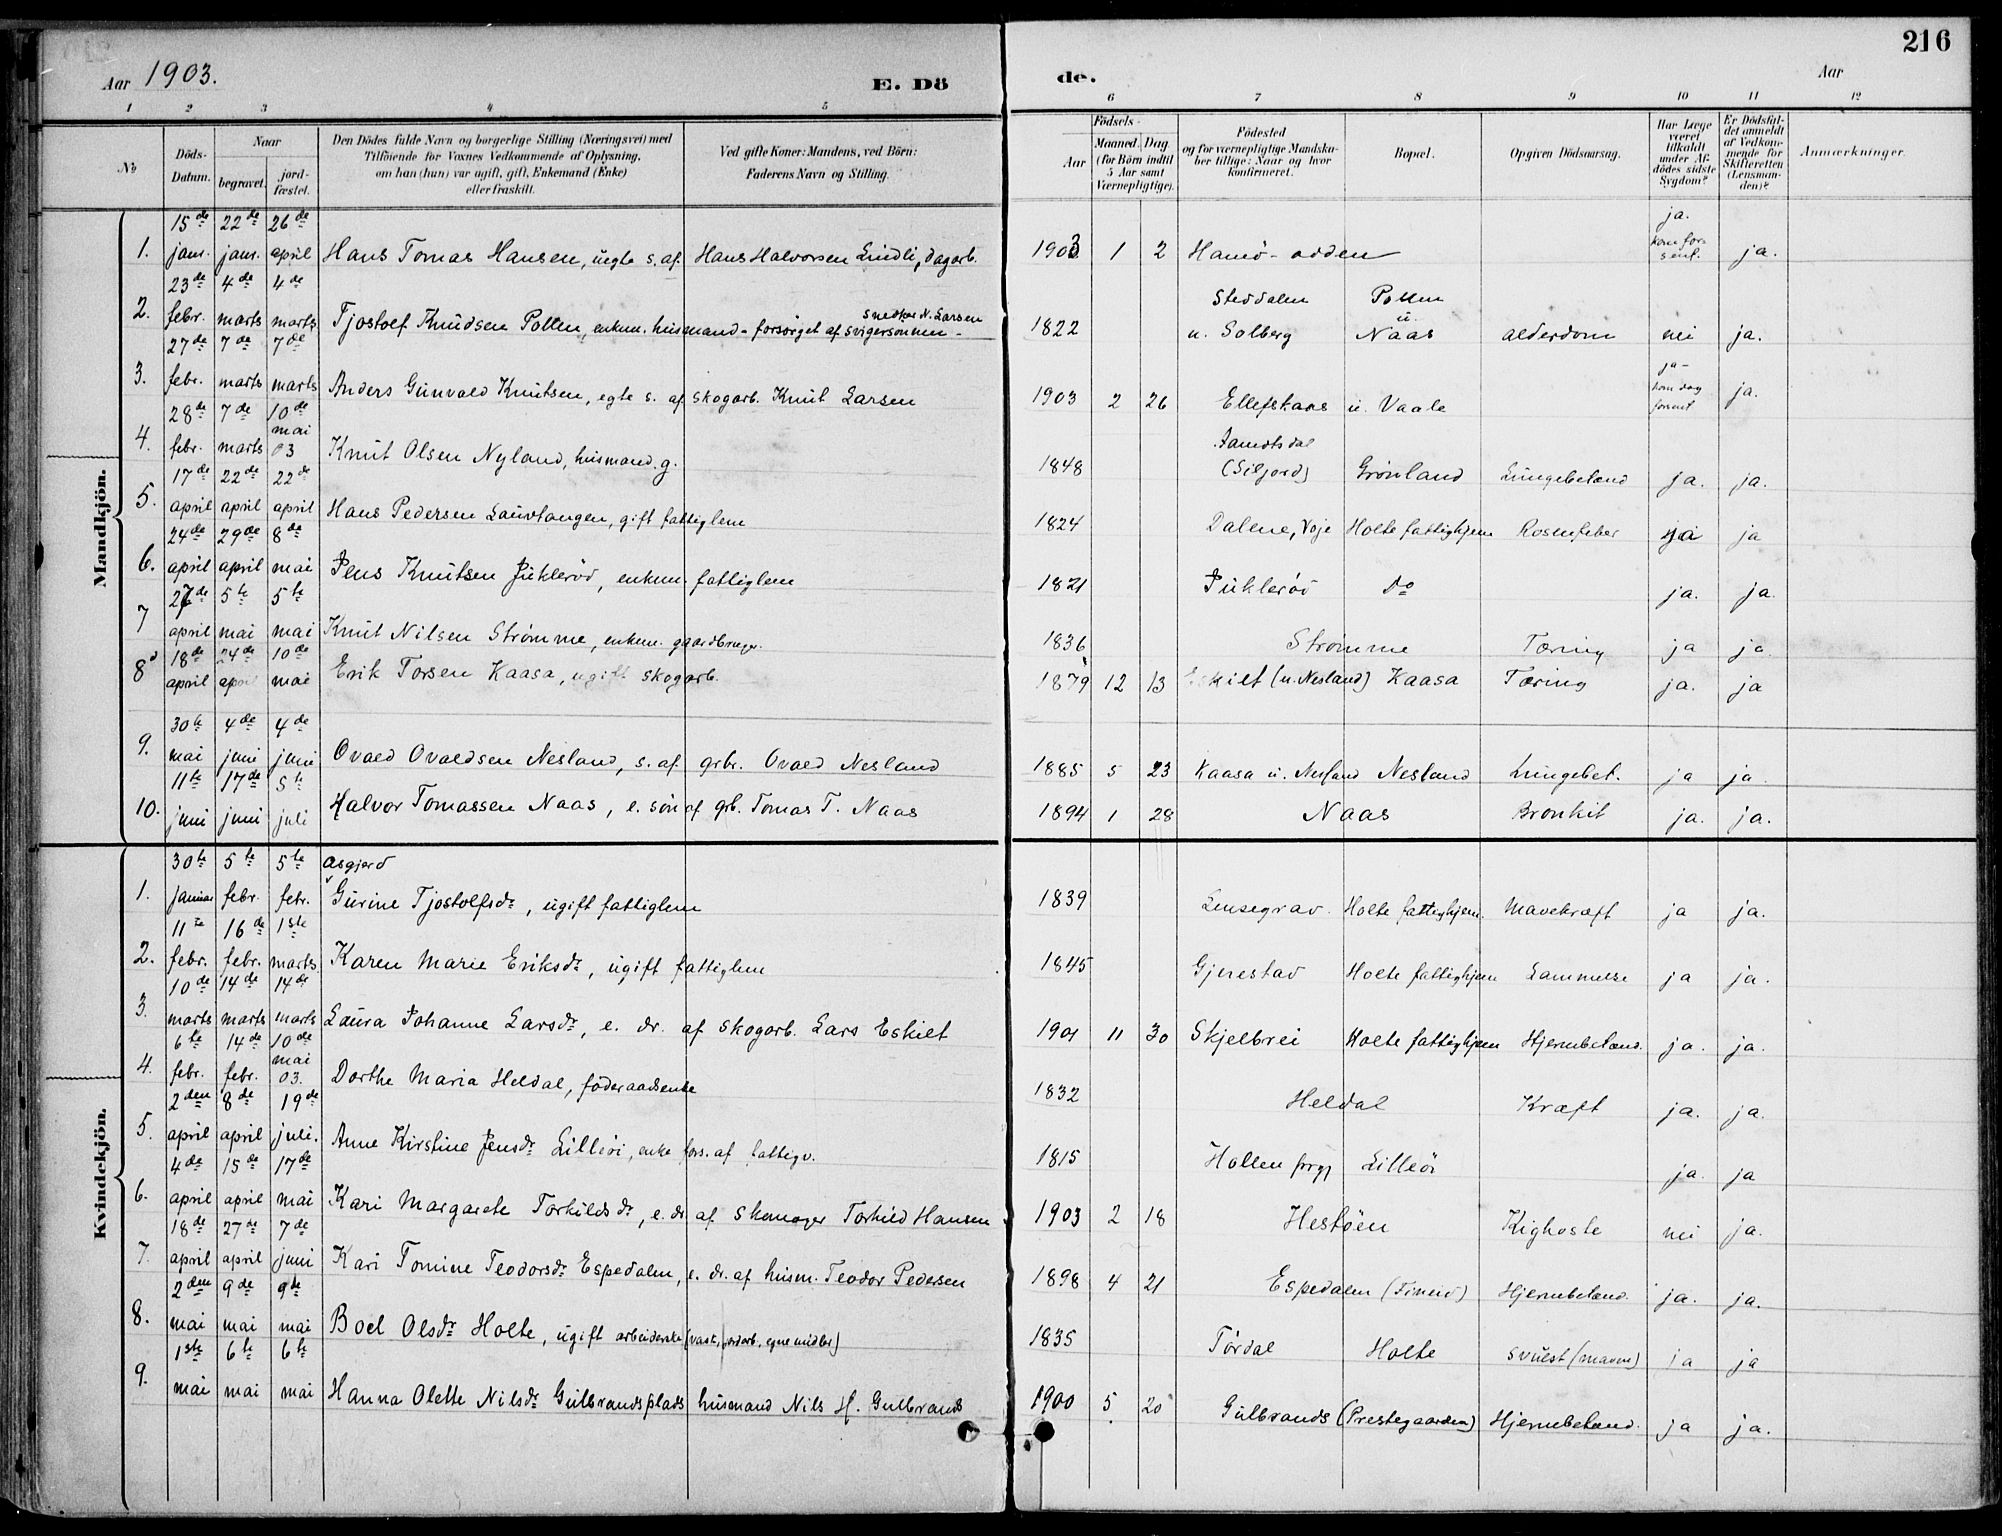 216
Aar 1903. E. Dö de. Aar
1 2 3 4 5 6 7 8 9 10 11 12
No
Döds-Datum.
Naar
begravet.
jord-fæstet.
Den Dödes fulde Navn og borgerlige Stilling (Næringsvei) med
Tilföiende for Voxnes Vedkommende af Oplysning,
om han (hun) var ugift, gift, Enkemand (Enke)
eller fraskilt.
Ved gifte Koner: Mandens, ved Börn:
Faderens Navn og Stilling.
Födsels-
Aar
Maaned. Dag
(for Börn indtil
5 Aar samt
Værnepligtige).
Födested
og for værnepligtige Mandska-
ber tillige: Naar og hvor
konfirmeret.
Bopæl.
Opgiven Dödsaarsag.
Har Læge
været
tilkaldt
under Af-
dödes sidste
Sygdom?
Er Dödsfal-
det anmeldt
af Vedkom-
mende for
Skifteretten
(Lensman-
den)?
Anmærkninger.
Mandkjön.
1. 15de janr. 22de janr. 26de april Hans Tomas Hansen, uegte s. af Hans Halvorsen Lindli, dagarb. 1903 1 2 Hamö-odden ja. kom for sent. ja.
2. 23de febr. 4de marts 4de marts Tjostolf Knudsen Pollen, enkem. husmand - forsörget af svigersønnen - snedker N. Larsen 1822 Steddalen u. Solberg Pollen u. Naas alderdom nei ja.
3. 27de febr. 7de marts 7de marts Anders Gunvald Knutsen, egte s. af skogarb. Knut Larsen 1903 2 26 Ellefskaas u. Vaale ja - kom dog forsent ja.
4. 28de febr. 7de marts 10de mai 03 Knut Olsen Nyland, husmand. g. 1848 (Siljord) Grönland Lungebetænd ja. ja.
5. 17de april 22de april 22de april Hans Pedersen Lauvtangen, gift fattiglem 1824 Dalene, Voje Holte fattighjem Rosenfeber ja ja
6. 24de april 29de april 8de mai Jens Knutsen Juklerød, enkem. fattiglem 1821 Juklerød do ja. ja.
7 27de april 5te mai 5te mai Knut Nilsen Strømme, enkem. gaardbruger. 1836 Strømme Tæring ja ja.
8 18de april 24de april 10de mai Erik Torsen Kaasa, ugift skogarb. 1879 12 13 Eskilt (u. Nesland) Kaasa Tæring ja. ja
9. 30te mai 4de juni 4de juni Ovald Ovaldsen Nesland, s. af grbr. Ovald Nesland 1885 5 23 Kaasa u. Nesland Nesland Lungebet. ja ja
10. 11te juni 17de juni 5te juli Halvor Tomassen Naas, e. søn af grb. Tomas T. Naas 1894 1 28 Naas Bronkit ja. ja.
Kvindekjön.
1. 30te januar 5te febr. 5te febr. Asgjerd Gurine Tjostolfsdr, ugift fattiglem 1839 Lensegrav. Holte fattighjem. Mavekræft ja ja.
2. 11te febr. 16de febr. 1ste marts Karen Marie Eriksdr, ugift fattiglem 1845 Gjerestad Holte fattighjem Lammelse ja ja.
3. 10de marts 14de marts 14de marts Laura Johanne Larsdr, e. dr. af skogarb. Lars Eskilt 1901 11 30 Skjelbrei Holte fattighjem Hjernebetænd. ja. ja.
4. 6te febr. 14de febr. 10de mai 03. Dorthe Maria Heldal, föderaadsenke 1832 Heldal Kræft ja. ja.
5. 2den april 8de april 19de juli. Anne Kirstine Jensdr Lilleöi, enke fors. af fattigv. 1815 Hollen prgj Lilleöi ja. ja
6. 4de april 15de april 17de mai Kari Margarete Torkildsdr, e. dr af skomager Torkild Hansen 1903 2 18 Hestöen Kighoste nei ja.
7. 18de april 27de april 7de juni Kari Tomine Teodorsdr Espedalen, e. dr. af husm. Teodor Pedersen 1898 4 21 Espedalen (Fineid) Hjernebetænd. ja. ja.
8. 2den mai 9de mai 9de mai Boel Olsdr Holte, ugift arbeiderske (vask, jordarb, egne midler) 1835 Tørdal Holte svulst (maven) ja ja
9. 1ste mai 6te mai 6te mai Hanna Olette Nilsdr Gulbrandsplads husmand Nils H. Gulbrands 1900 5 20 Gulbrands (Prestegaarden) Hjernebetænd. ja ja.